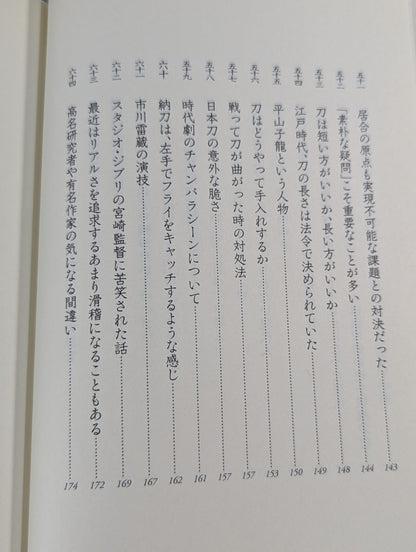 五十一 居合の原点も実現不可能な課題との対決だった 143
五十二 「素朴な疑問」こそ重要なことが多い 144
五十三 刀は短い方がいいか、長い方がいいか 148
五十四 江戸時代、刀の長さは法令で決められていた 149
五十五 平山子龍という人物 150
五十六 刀はどうやって手入れするか 153
五十七 戦って刀が曲がった時の対処法 157
五十八 日本刀の意外な脆さ 157
五十九 時代劇のチャンバラシーンについて 161
六十 納刀は、左手でフライをキャッチするような感じ 162
六十一 市川雷蔵の演技 167
六十二 スタジオ・ジブリの宮崎監督に苦笑された話 169
六十三 最近はリアルさを追求するあまり滑稽になることもある 172
六十四 高名研究者や有名作家の気になる間違い 174